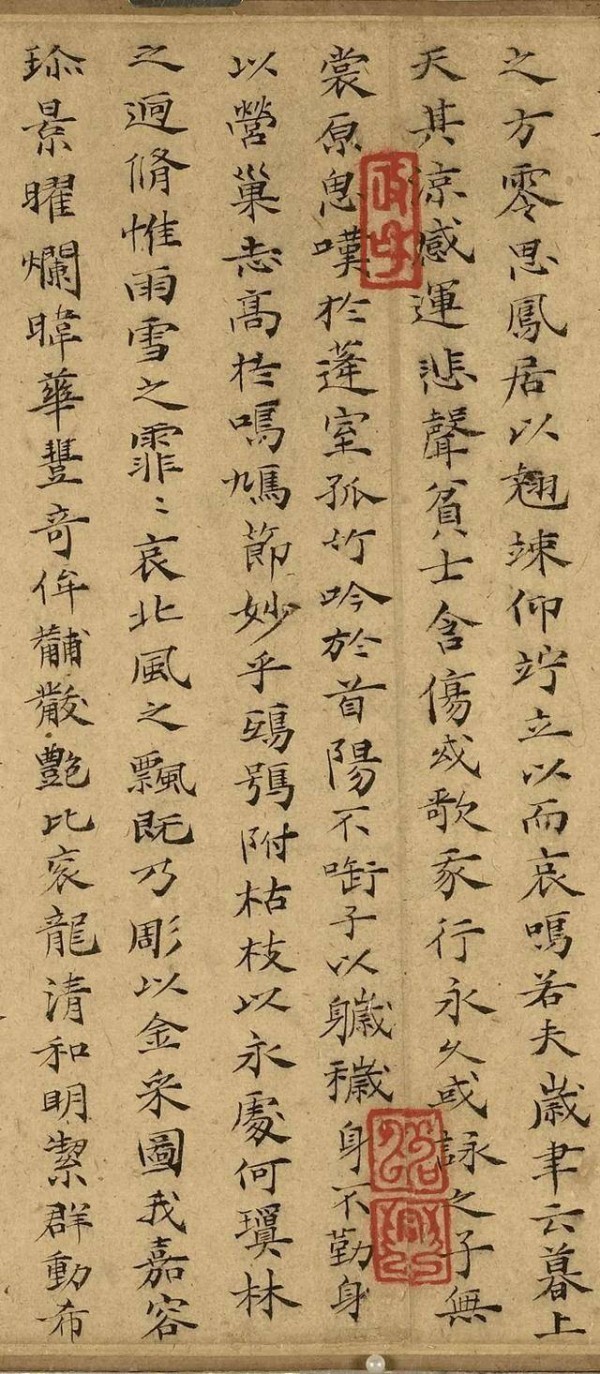 之方零思鳳居以翹竦仰竚立以而哀鳴若夫歲聿云暮上
天其涼感運悲聲貧士含傷或歌我行永久或詠之子無
裳原思嘆於蓬室孤竹吟於首陽不㗸子以穢身不勤身
以營巢志高於鳴鳩節妙乎鴟鴞附枯枝以永處何瓊林
之迥脩惟雨雪之霏〻哀北風之飄既乃彫以金采圖我嘉容
珎景曜爛暐華豐奇侔黼黻艷比袞龍清和明潔群動希
政和
紹興